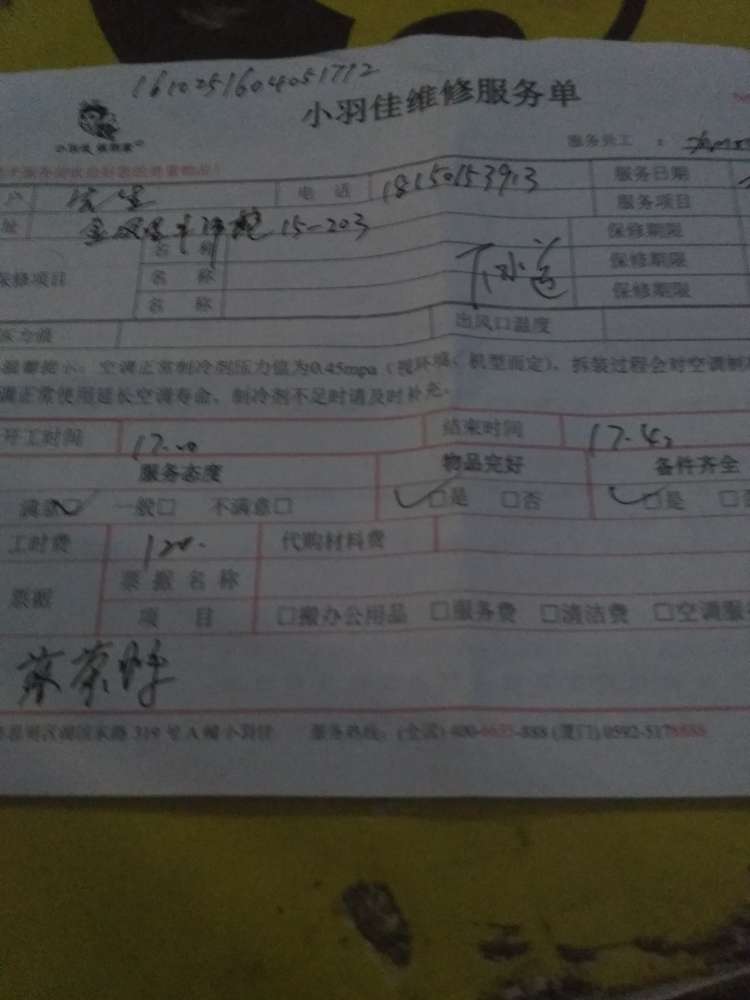 1610251604051712
小羽佳维修服务单
服务员工：
户 电话 18150153913 服务日期
址 15-203 服务项目
保修项目 名称 下水道 保修期限
名称 保修期限
名称 保修期限
压力值 出风口温度
温馨提示：空调正常制冷剂压力值为0.45mpa（视环境、机型而定)，拆装过程会对空调制
调正常使用延长空调寿命，制冷剂不足时请及时补充。
开工时间 17.00 结束时间 17.4
服务态度 物品完好 备件齐全
满意□ 一般□ 不满意□ □是 □否 □是
工时费 120. 代购材料费
票据 票据名称
项目 □搬办公用品 □服务费 □清洁费 □空调服
319号A幢小羽佳 服务热线：(全国) 400-6633-888 (厦门) 0592-5178888